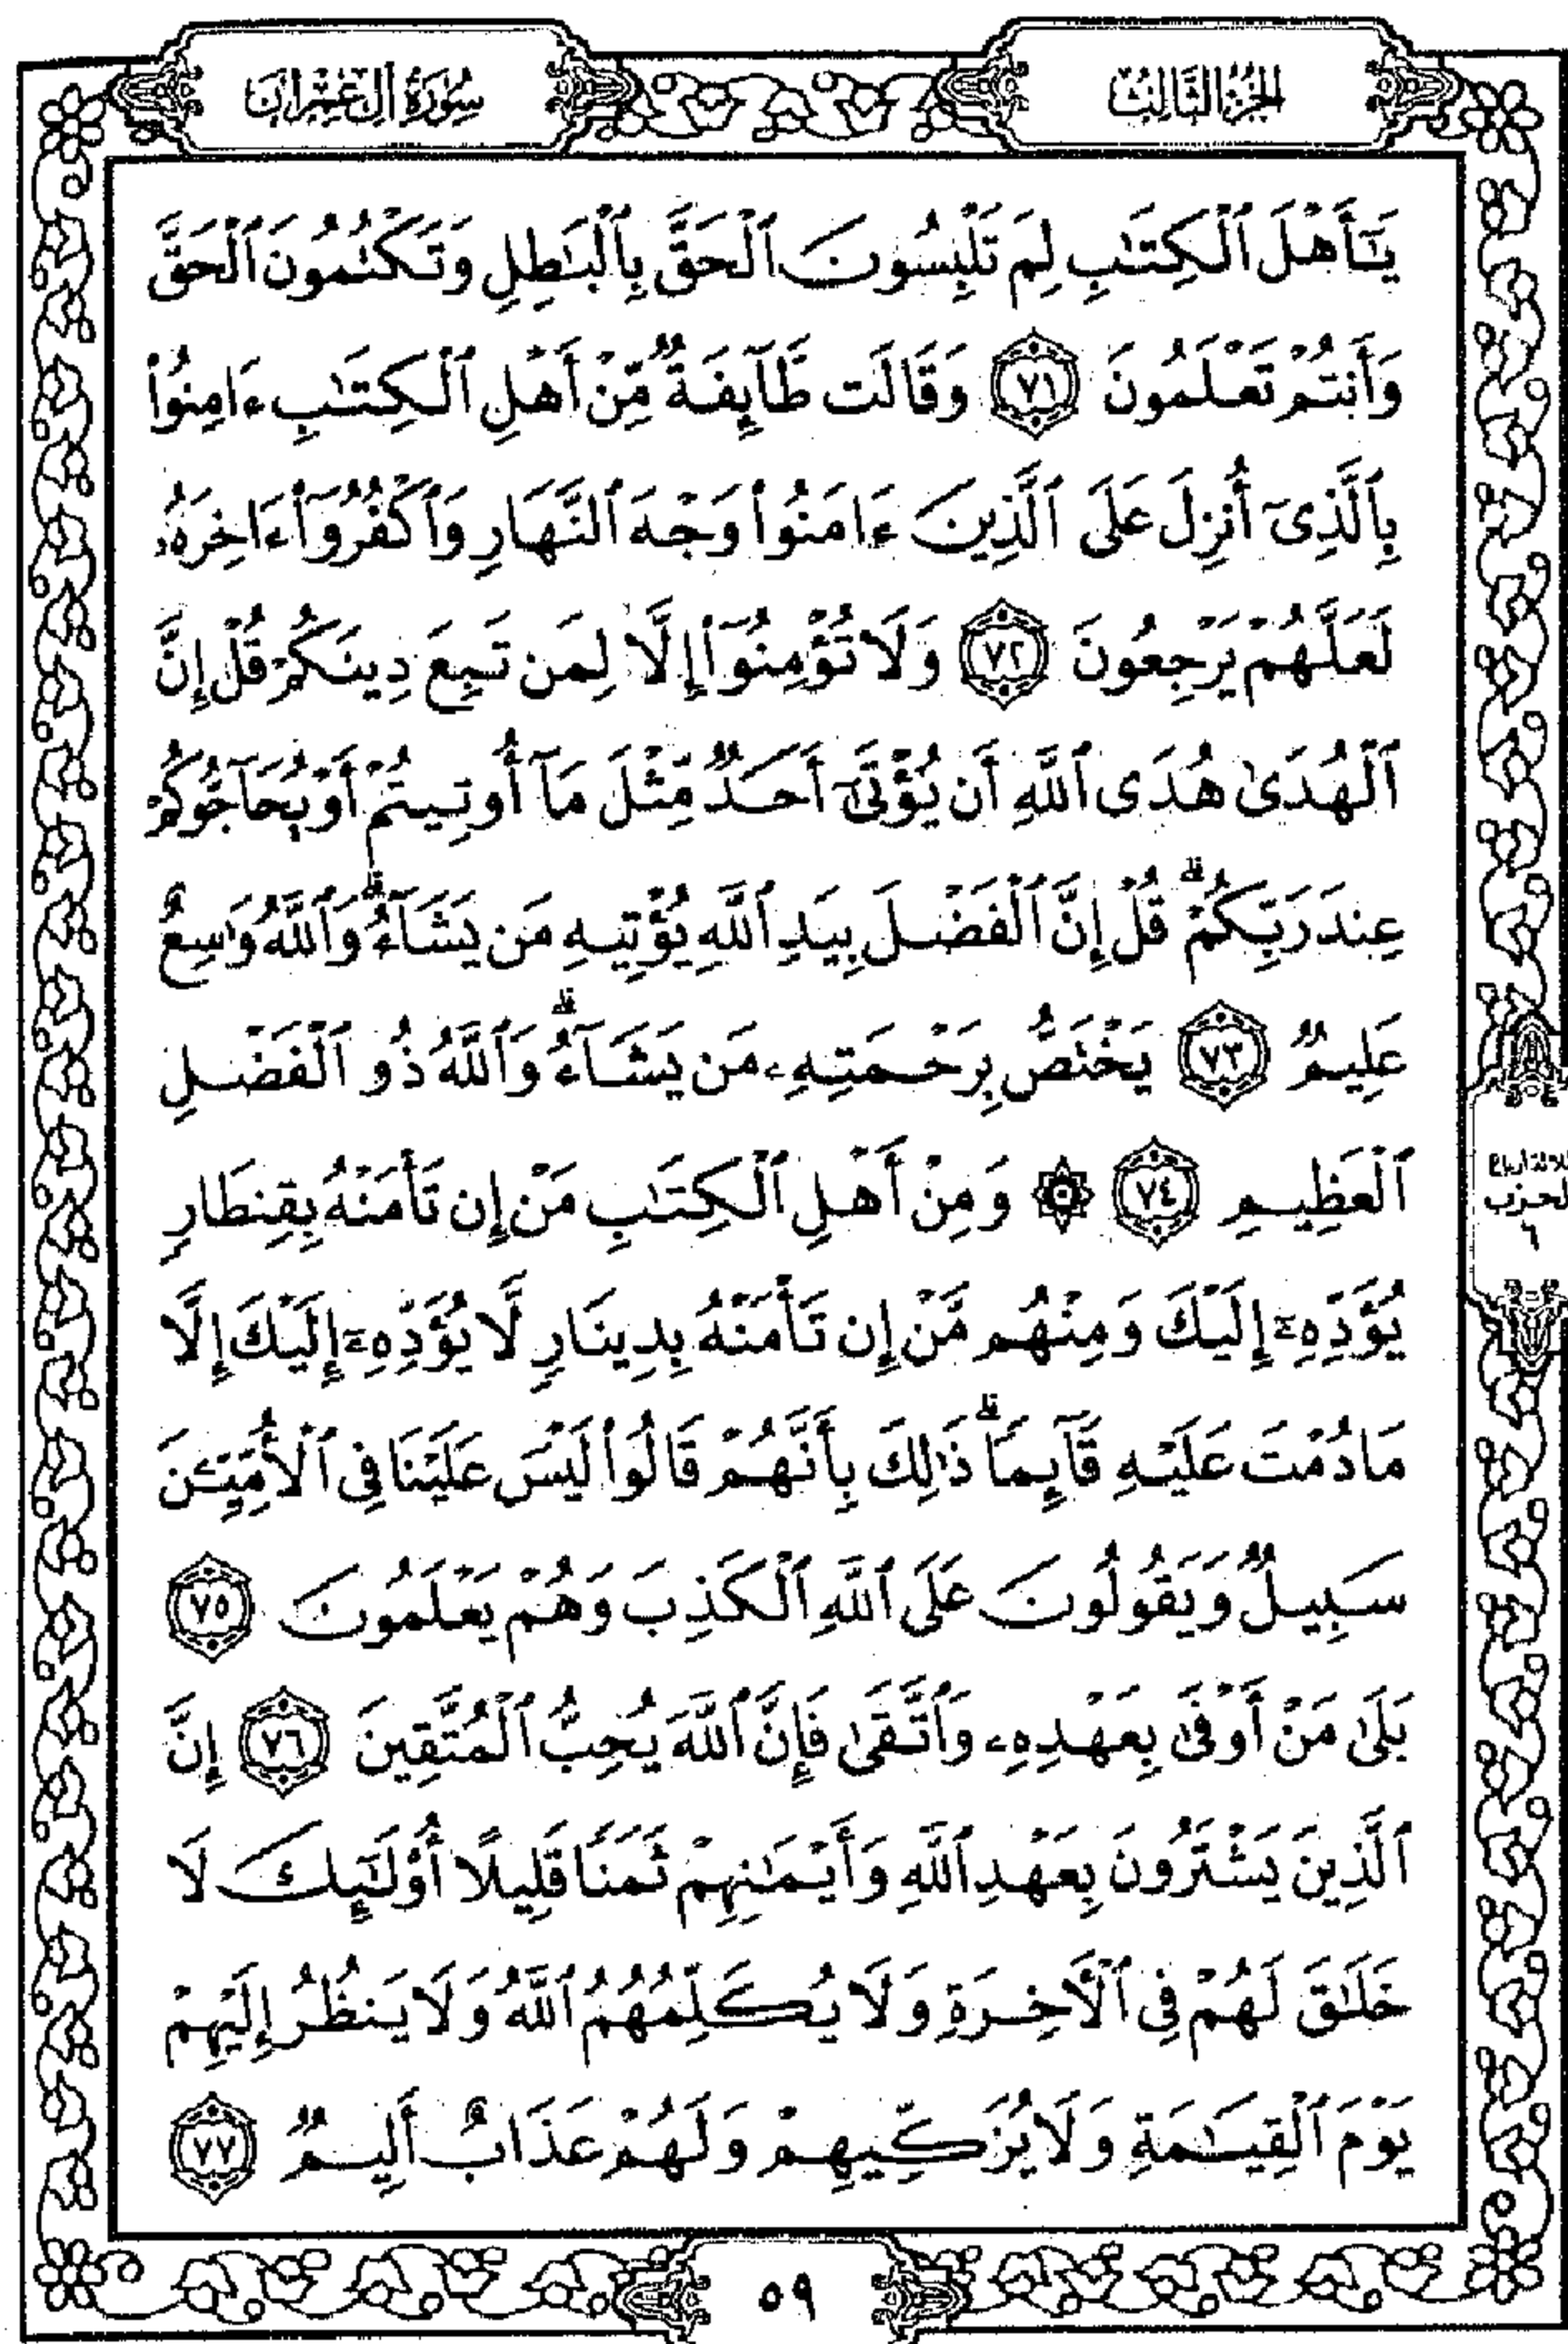 الجزء الثالث
سورة آل عمران
يَـٰٓأَهْلَ ٱلْكِتَـٰبِ لِمَ تَلْبِسُونَ ٱلْحَقَّ بِٱلْبَـٰطِلِ وَتَكْتُمُونَ ٱلْحَقَّ
وَأَنتُمْ تَعْلَمُونَ ٧١ وَقَالَت طَّآئِفَةٌ مِّنْ أَهْلِ ٱلْكِتَـٰبِ ءَامِنُوا۟
بِٱلَّذِىٓ أُنزِلَ عَلَى ٱلَّذِينَ ءَامَنُوا۟ وَجْهَ ٱلنَّهَارِ وَٱكْفُرُوٓا۟ ءَاخِرَهُۥ
لَعَلَّهُمْ يَرْجِعُونَ ٧٢ وَلَا تُؤْمِنُوٓا۟ إِلَّا لِمَن تَبِعَ دِينَكُمْ قُلْ إِنَّ
ٱلْهُدَىٰ هُدَى ٱللَّهِ أَن يُؤْتَىٰٓ أَحَدٌ مِّثْلَ مَآ أُوتِيتُمْ أَوْ يُحَآجُّوكُمْ
عِندَ رَبِّكُمْ ۗ قُلْ إِنَّ ٱلْفَضْلَ بِيَدِ ٱللَّهِ يُؤْتِيهِ مَن يَشَآءُ ۗ وَٱللَّهُ وَٰسِعٌ
عَلِيمٌ ٧٣ يَخْتَصُّ بِرَحْمَتِهِۦ مَن يَشَآءُ ۗ وَٱللَّهُ ذُو ٱلْفَضْلِ
ٱلْعَظِيمِ ٧٤ ۞ وَمِنْ أَهْلِ ٱلْكِتَـٰبِ مَنْ إِن تَأْمَنْهُ بِقِنطَارٍ
يُؤَدِّهِۦٓ إِلَيْكَ وَمِنْهُم مَّنْ إِن تَأْمَنْهُ بِدِينَارٍ لَّا يُؤَدِّهِۦٓ إِلَيْكَ إِلَّا
مَا دُمْتَ عَلَيْهِ قَآئِمًا ۗ ذَٰلِكَ بِأَنَّهُمْ قَالُوا۟ لَيْسَ عَلَيْنَا فِى ٱلْأُمِّيِّـۧنَ
سَبِيلٌ وَيَقُولُونَ عَلَى ٱللَّهِ ٱلْكَذِبَ وَهُمْ يَعْلَمُونَ ٧٥
بَلَىٰ مَنْ أَوْفَىٰ بِعَهْدِهِۦ وَٱتَّقَىٰ فَإِنَّ ٱللَّهَ يُحِبُّ ٱلْمُتَّقِينَ ٧٦ إِنَّ
ٱلَّذِينَ يَشْتَرُونَ بِعَهْدِ ٱللَّهِ وَأَيْمَـٰنِهِمْ ثَمَنًا قَلِيلًا أُو۟لَـٰٓئِكَ لَا
خَلَـٰقَ لَهُمْ فِى ٱلْـَٔاخِرَةِ وَلَا يُكَلِّمُهُمُ ٱللَّهُ وَلَا يَنظُرُ إِلَيْهِمْ
يَوْمَ ٱلْقِيَـٰمَةِ وَلَا يُزَكِّيهِمْ وَلَهُمْ عَذَابٌ أَلِيمٌ ٧٧
الحزب
٦
٥٩